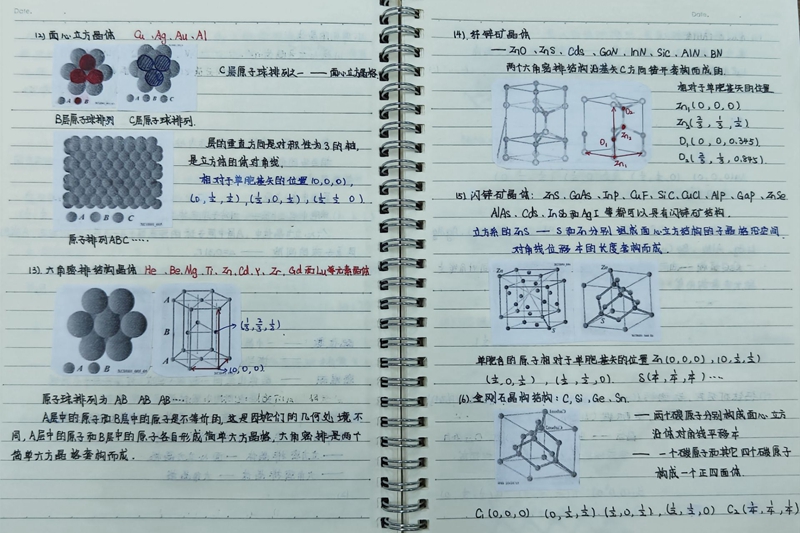 Date.
12) 面心立方晶体 Cu、Ag、Au、Al
C层原子球排列之一 —— 面心立方晶格
A B
A B C
B层原子球排列 C层原子球排列.
层的垂直方向是对称性为3的轴,
是立方体的体对角线.
相对于单胞基矢的位置(0,0,0),
(0,½,½),(½,0,½),(½ ½ 0)
A B C
原子排列ABC……
13) 六角密排结构晶体 He、Be、Mg、Ti、Zn、Cd、Y、Zr、Gd和Lu等元素晶体
A
B
A
(⅓,⅔,½)
(0,0,0)
A B
原子球排列为 AB AB AB…
A层中的原子和B层中的原子是不等价的,这是因它们的几何处境不
同,A层中的原子和B层中的原子各自形成简单六方晶格,六角密排是两个
简单六方晶格套构而成.
Date.
14) 纤锌矿晶体
— ZnO、ZnS、Cds、GaN、InN、SiC、AlN、BN
两个六角密排结构沿基矢C方向错开套构而成的
相对于单胞基矢的位置
Zn₁(0,0,0)
O₁(0,0,0.345)
O₂
Zn₂
O₁
Zn₁
15) 闪锌矿晶体: ZnS、GaAs、InP、CuF、SiC、CuCl、AlP、GaP、ZnSe
AlAs、Cds、InSb和AgI等都可以具有闪锌矿结构.
立方系的ZnS —— S和Zn分别组成面心立方结构的子晶格沿空间
对角线位移¼的长度套构而成.
Zn
S
Zn
S
单胞各的原子相对于单胞基矢的位置 Zn(0,0,0),(0,½,½)
(½,0,½),(½,½,0) S(¼,¼,¼)…
16) 金刚石晶构结构: C、Si、Ge、Sn
—— 两个碳原子分别构成面心立方
沿体对角线平移¼
—— 一个碳原子和其它四个碳原子
构成一个正四面体.
C₁(0,0,0) (0,½,½)(½,0,½),(½,½,0) C₂(¼,¼,¼)